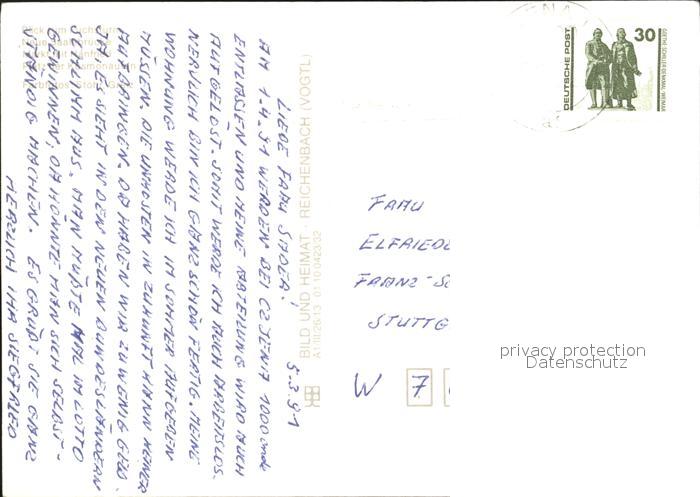 5.3.91
LIEBE FRAU SADER!
AM 1.4.91 WERDEN BEI CZ JENA 1000ende
ENTLASSEN UND MEINE ABTEILUNG WIRD AUCH
AUFGELÖST. SOMIT WERDE ICH AUCH ARBEITSLOS.
NERVLICH BIN ICH GANZ SCHÖN FERTIG. MEINE
WOHNUNG WERDE ICH IM SOMMER AUFGEBEN
MÜSSEN. DIE UNKOSTEN IN ZUKUNFT KANN KEINER
AUFBRINGEN. DA HABEN WIR ZU WENIG GELD.
JA ES SIEHT IN DEN NEUEN BUNDESLÄNDERN
SCHLIMM AUS. MAN MÜßTE MAL IM LOTTO
GEWINNEN, DA KÖNNTE MAN SICH SELBST-
STÄNDIG MACHEN. ES GRÜßT SIE GANZ
HERZLICH IHR SIEGFRIED
BILD UND HEIMAT · REICHENBACH (VOGTL)
A1/III/26/13 01 10 0423/32
DEUTSCHE POST
30
GOETHE-SCHILLER-DENKMAL · WEIMAR
FRAU
ELFRIEDE
FRANZ-SC
STUTTG
W 7
privacy protection
Datenschutz